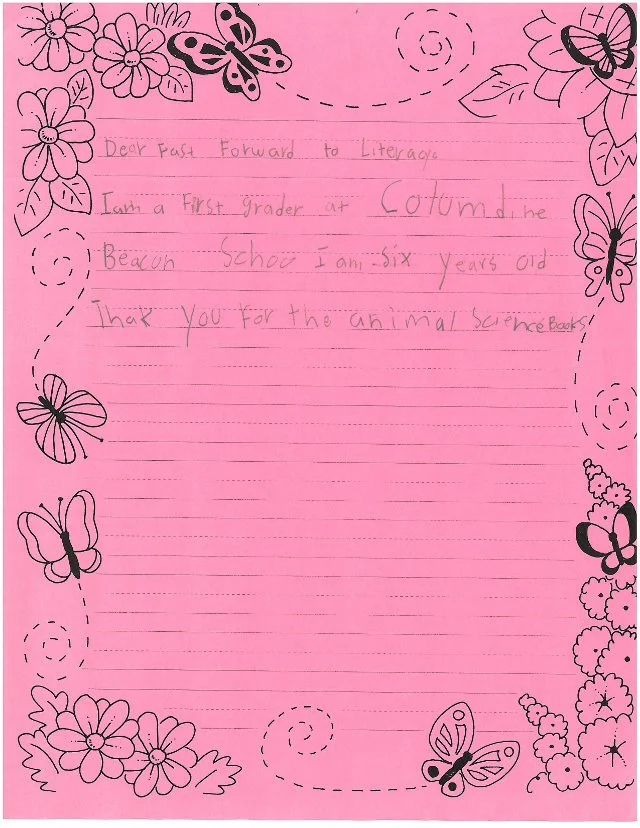 Dear Fast Forward to Literacy.
I am a First grader at Columdine
Beacon Schoo I am six years old
Thak You For the animal Science Books